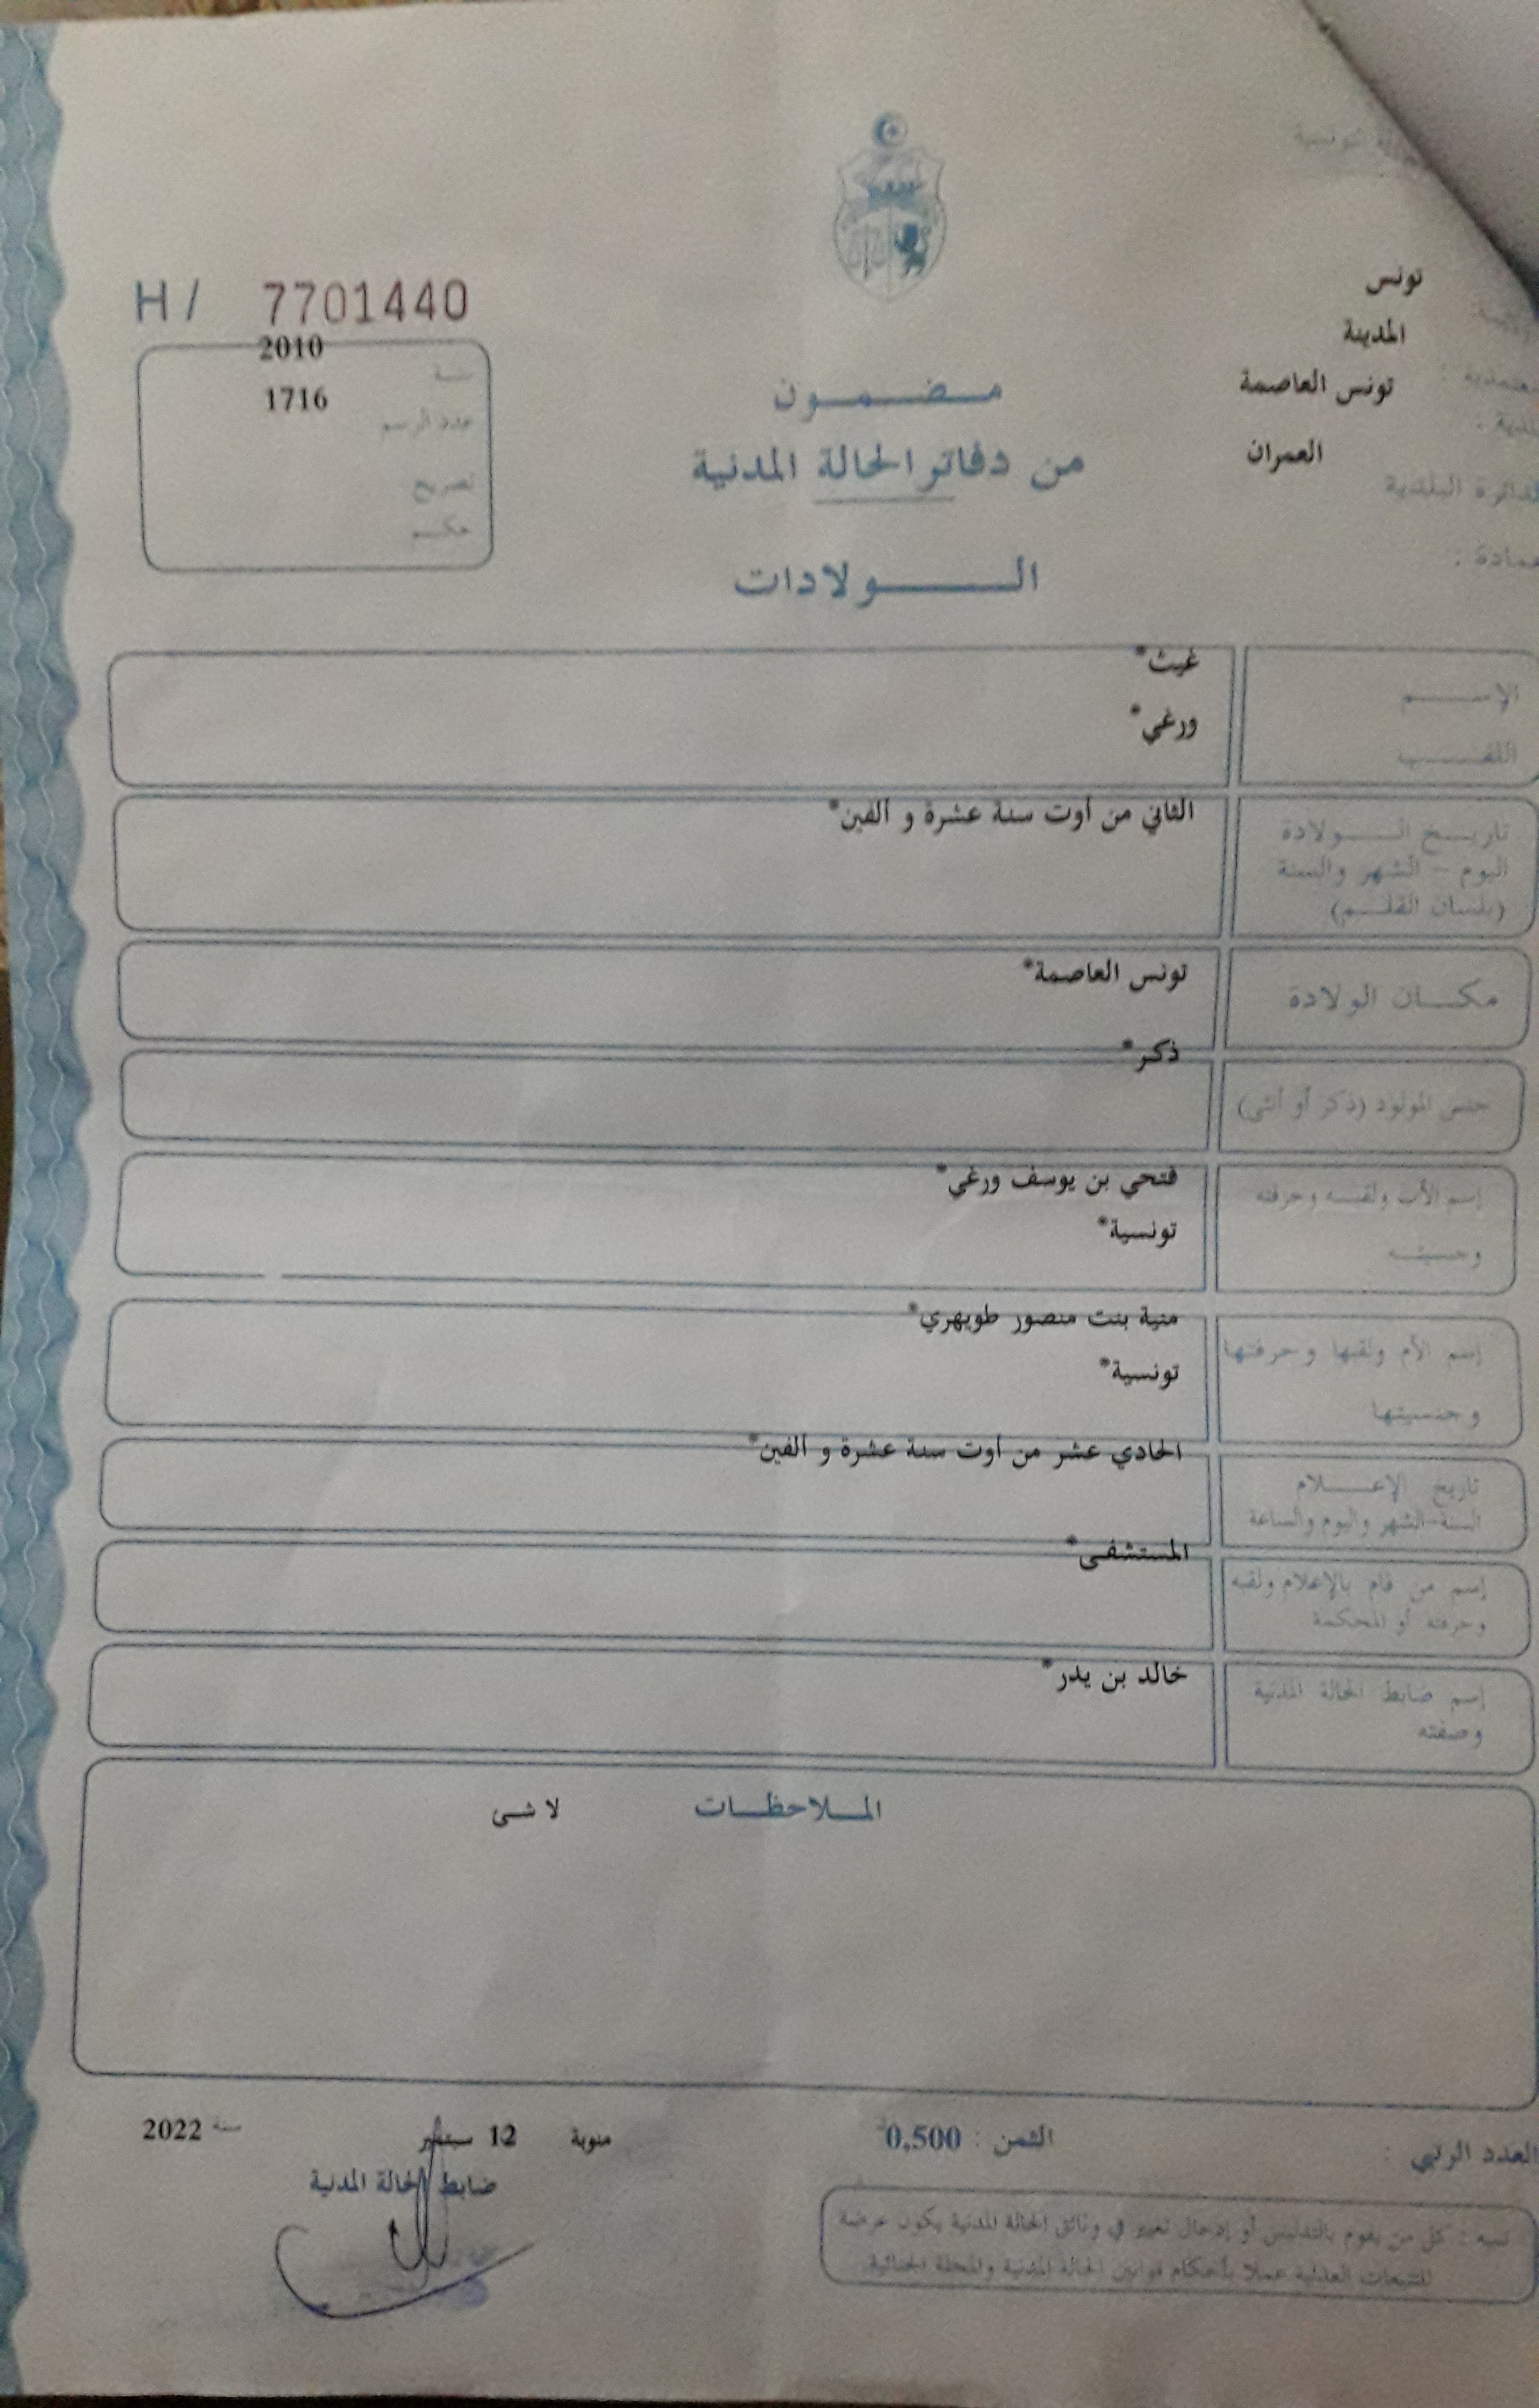 تونس
المدينة
معتمدية : تونس العاصمة
العمران
الدائرة البلدية
عمادة :
H / 7701440
سنة 2010
عدد الرسم 1716
تصريح
حكم
مضمون
من دفاتر الحالة المدنية
الولادات
الإسم غيث*
اللقب ورغي*
تاريخ الولادة الثاني من أوت سنة عشرة و ألفين*
اليوم - الشهر والسنة
(بلسان القلم)
مكان الولادة تونس العاصمة*
جنس المولود (ذكر أو أنثى) ذكر*
إسم الأب ولقبه وحرفته فتحي بن يوسف ورغي*
وجنسيته تونسية*
إسم الأم ولقبها وحرفتها منية بنت منصور طويهري*
وجنسيتها تونسية*
تاريخ الإعلام الحادي عشر من أوت سنة عشرة و ألفين*
السنة-الشهر واليوم والساعة
إسم من قام بالإعلام ولقبه المستشفى*
وحرفته أو المحكمة
إسم ضابط الحالة المدنية خالد بن يدر*
وصفته
الملاحظات لا شى
العدد الرتبي :
الثمن : 0,500
منوبة 12 سبتمبر سنة 2022
ضابط الحالة المدنية
تنبيه : كل من يقوم بالتدليس أو إدخال تغيير في وثائق الحالة المدنية يكون عرضة
للتتبعات العدلية عملا بأحكام قوانين الحالة المدنية والمجلة الجنائية.